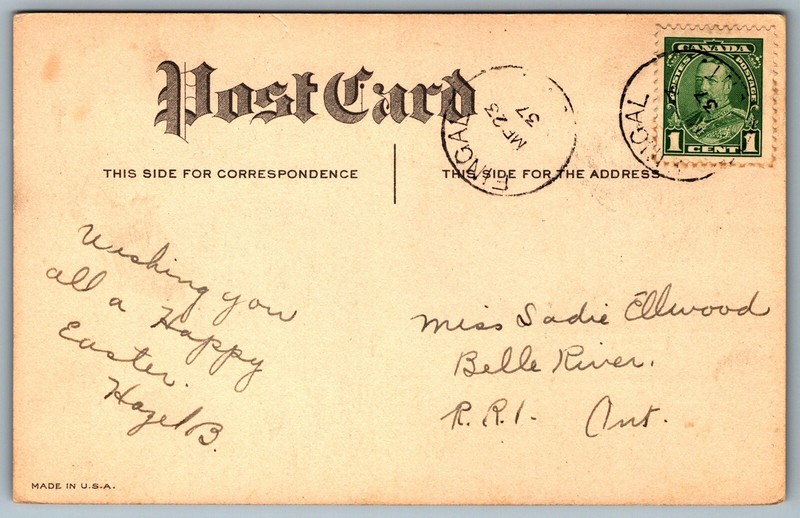 Post Card
THIS SIDE FOR CORRESPONDENCE
THIS SIDE FOR THE ADDRESS
CANADA
POSTES POSTAGE
1 CENT 1
FINGAL
MR 23
37
FINGAL
Wishing you
all a Happy
Easter.
Hazel B.
Miss Sadie Ellwood
Belle River.
R.R.1. Ont.
MADE IN U.S.A.